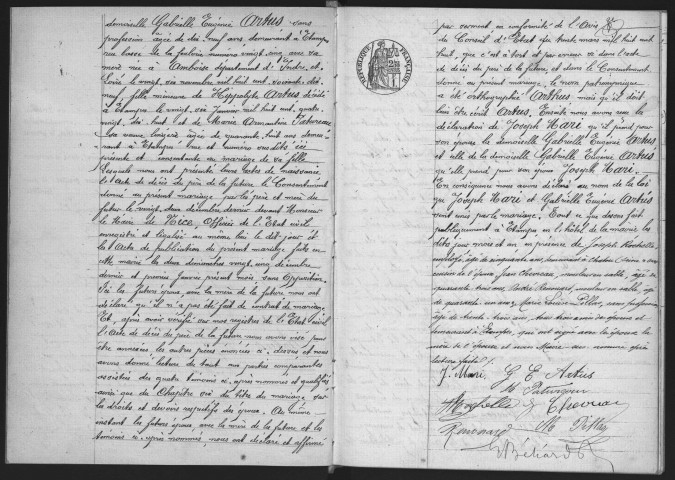 demoiselle Gabrielle Eugénie Artus sans
profession âgée de dix neuf ans demeurant à Etampes
rue basse de la foulerie numéro vingt cinq avec sa
mère née à Amboise département d'Indre et
Loire le vingt six novembre mil huit cent soixante dix
neuf, fille mineure de Hippolyte Artus décédé
à Etampes le vingt six Janvier mil huit cent quatre
vingt dix huit et de Marie Armantine
sa veuve lingère âgée de quarante huit ans demeu
rant à Etampes rue et numéro susdits ici
présente et consentante au mariage de sa fille
Lesquels nous ont présenté leurs actes de naissance
l'acte de décès du père de la future le Consentement
donné au présent mariage par les père et mère du
futur le vingt deux décembre dernier devant Monsieur
le Maire de Officier de l'Etat civil
enregistré et légalisé au même lieu le dit jour et
les Actes de publication du présent mariage faits en
cette mairie les deux dimanches vingt cinq décembre
dernier et premier Janvier présent mois sans Opposition
Ici les futurs époux et la mère de la future nous ont
déclaré qu'il n'a pas été fait de contrat de mariage
Et, après avoir vérifié sur nos registres de l'Etat civil
l'acte de décès du père de la future nous avons visé pour
être annexées les autres pièces énoncées ci-dessus et nous
avons donné lecture de tout aux parties comparantes
assistées des quatre témoins ci-après nommés et qualifiés
ainsi que du Chapitre six du titre du mariage sur
les droits et devoirs respectifs des époux. Au même
instant les futurs époux, avec la mère de la future et les
témoins ci-après nommés, nous ont déclaré et affirmé
RÉPUBLIQUE FRANÇAISE
par serment, en conformité de l'Avis
du Conseil d'Etat du trente mars mil huit cent
huit, que c'est à tort et par erreur si dans l'acte
de décès du père de la future et dans le Consentement
donné au présent mariage, le nom patronymique
a été orthographié Arthus mais qu'il doit
bien être écrit Artus. Ensuite nous avons reçu la
déclaration de Joseph Maré qu'il prend pour
son épouse la demoiselle Gabrielle Eugénie Artus
et celle de la demoiselle Gabrielle Eugénie Artus
qu'elle prend pour son époux Joseph Maré.
En conséquence nous avons déclaré au nom de la loi
que Joseph Maré et Gabrielle Eugénie Artus
sont unis par le mariage. Tout ce que dessus fait
publiquement à Etampes en l'hôtel de la mairie les
dits jour mois et an en présence de Joseph Rochelle
employé, âgé de cinquante ans, demeurant à
cousin de l'époux Jean Chevreau, journalier, âgé de
quarante trois ans André
de quarante un ans, Marie sans profession
âgée de trente trois ans, tous trois amis des époux et
demeurant à Etampes, qui ont signé avec les époux la
mère de l'épouse et nous Maire susnommé après
lecture faite.
J. Maré. G E Artus
Rochelle J Chevreau
Béliard